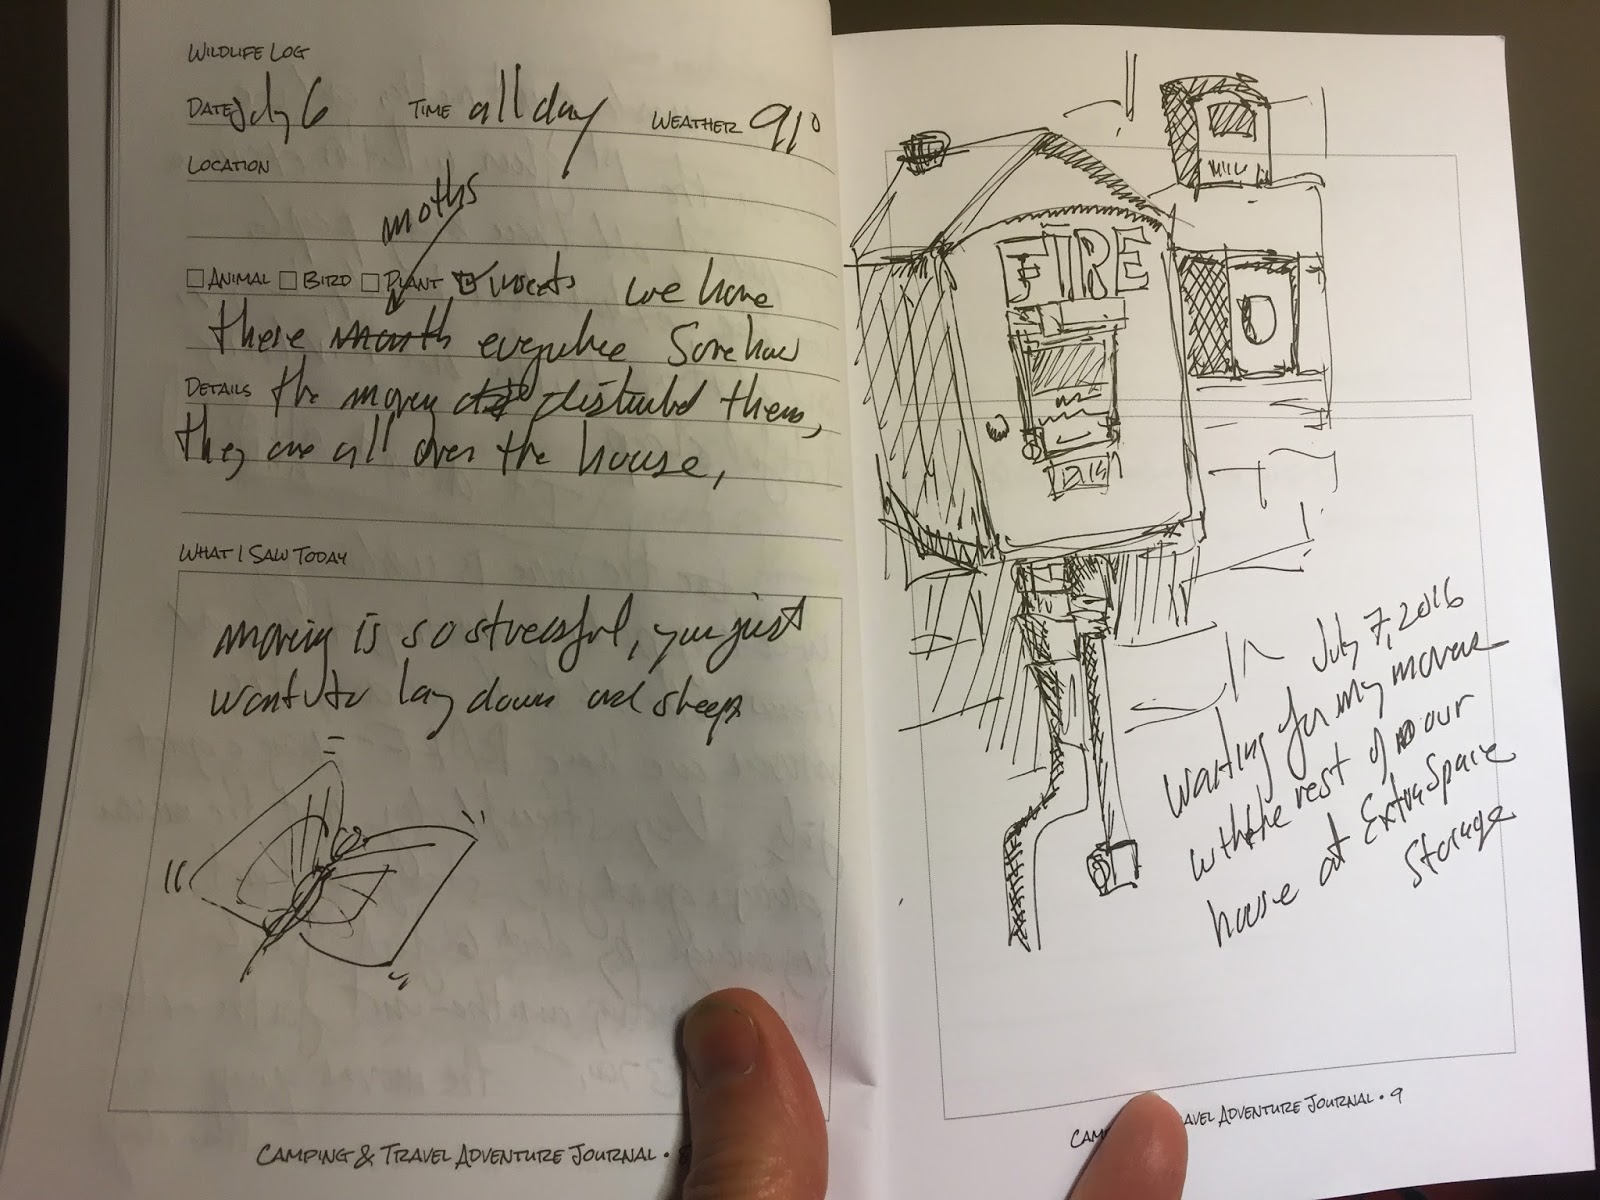 WILDLIFE LOG
DATE July 6 TIME all day WEATHER 91°
LOCATION
moths
ANIMAL BIRD PLANT insects we have
these everywhere Somehow
DETAILS the moving disturbed them,
they are all over the house,
WHAT I SAW TODAY
moving is so stressful, you just
want to lay down and sleep
CAMPING & TRAVEL ADVENTURE JOURNAL • 8
FIRE
July 7, 2016
Waiting for my movers
with the rest of our
house at ExtraSpace
Storage
TRAVEL ADVENTURE JOURNAL • 9